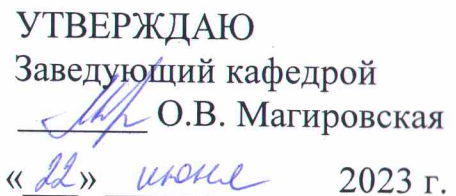 УТВЕРЖДАЮ
Заведующий кафедрой
О.В. Магировская
«22» июня 2023 г.